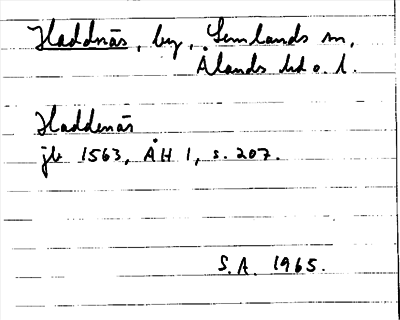 Haddnäs, by, Lemlands sn,
Ålands hd o. l.
Haddenäs
jb 1563, ÅH 1, s. 207.
S.A. 1965.